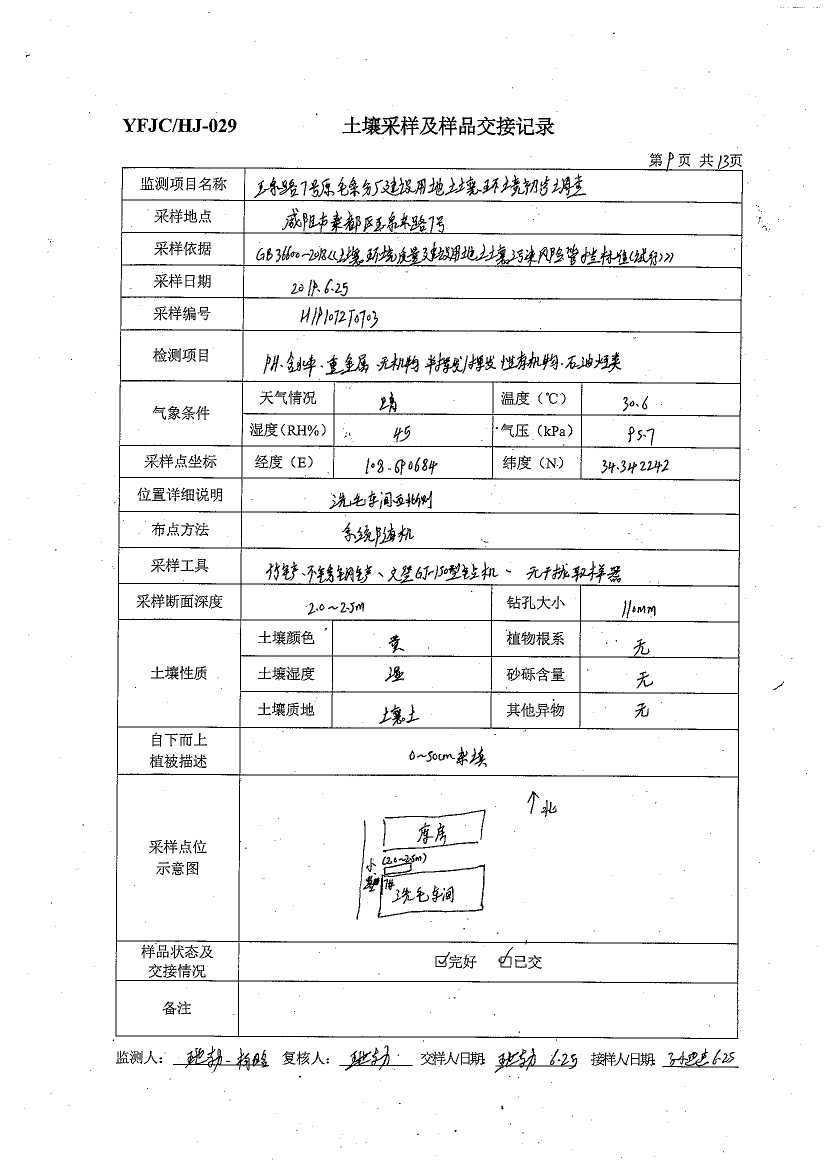 YFJC/HJ-029 土壤采样及样品交接记录
第9页 共13页
监测项目名称 玉泉路7号原毛条分厂建设用地土壤环境初步调查
采样地点 咸阳市秦都区玉泉东路7号
采样依据 GB36600-2018《土壤环境质量建设用地土壤污染风险管控标准(试行)》
采样日期 2019.6.25
采样编号 H191072T0703
检测项目 PH、含水率、重金属、无机物 半挥发/挥发性有机物、石油烃类
气象条件 天气情况 晴 温度(℃) 30.6
湿度(RH%) 45 气压(kPa) 95.7
采样点坐标 经度(E) 108.690684 纬度(N) 34.342242
位置详细说明 洗毛车间西北侧
布点方法 系统随机
采样工具 竹铲、不锈钢铲、GJ-150型钻机、无干扰取样器
采样断面深度 2.0~2.5m 钻孔大小 110mm
土壤性质 土壤颜色 黄 植物根系 无
土壤湿度 湿 砂砾含量 无
土壤质地 壤土 其他异物 无
自下而上
植被描述
0~50cm杂填
采样点位
示意图
↑北
库房
(2.0~2.5m)
小
7#
洗毛车间
样品状态及
交接情况
☑完好 ☑已交
备注
监测人: 复核人: 交样人/日期: 6.25 接样人/日期: 6.25